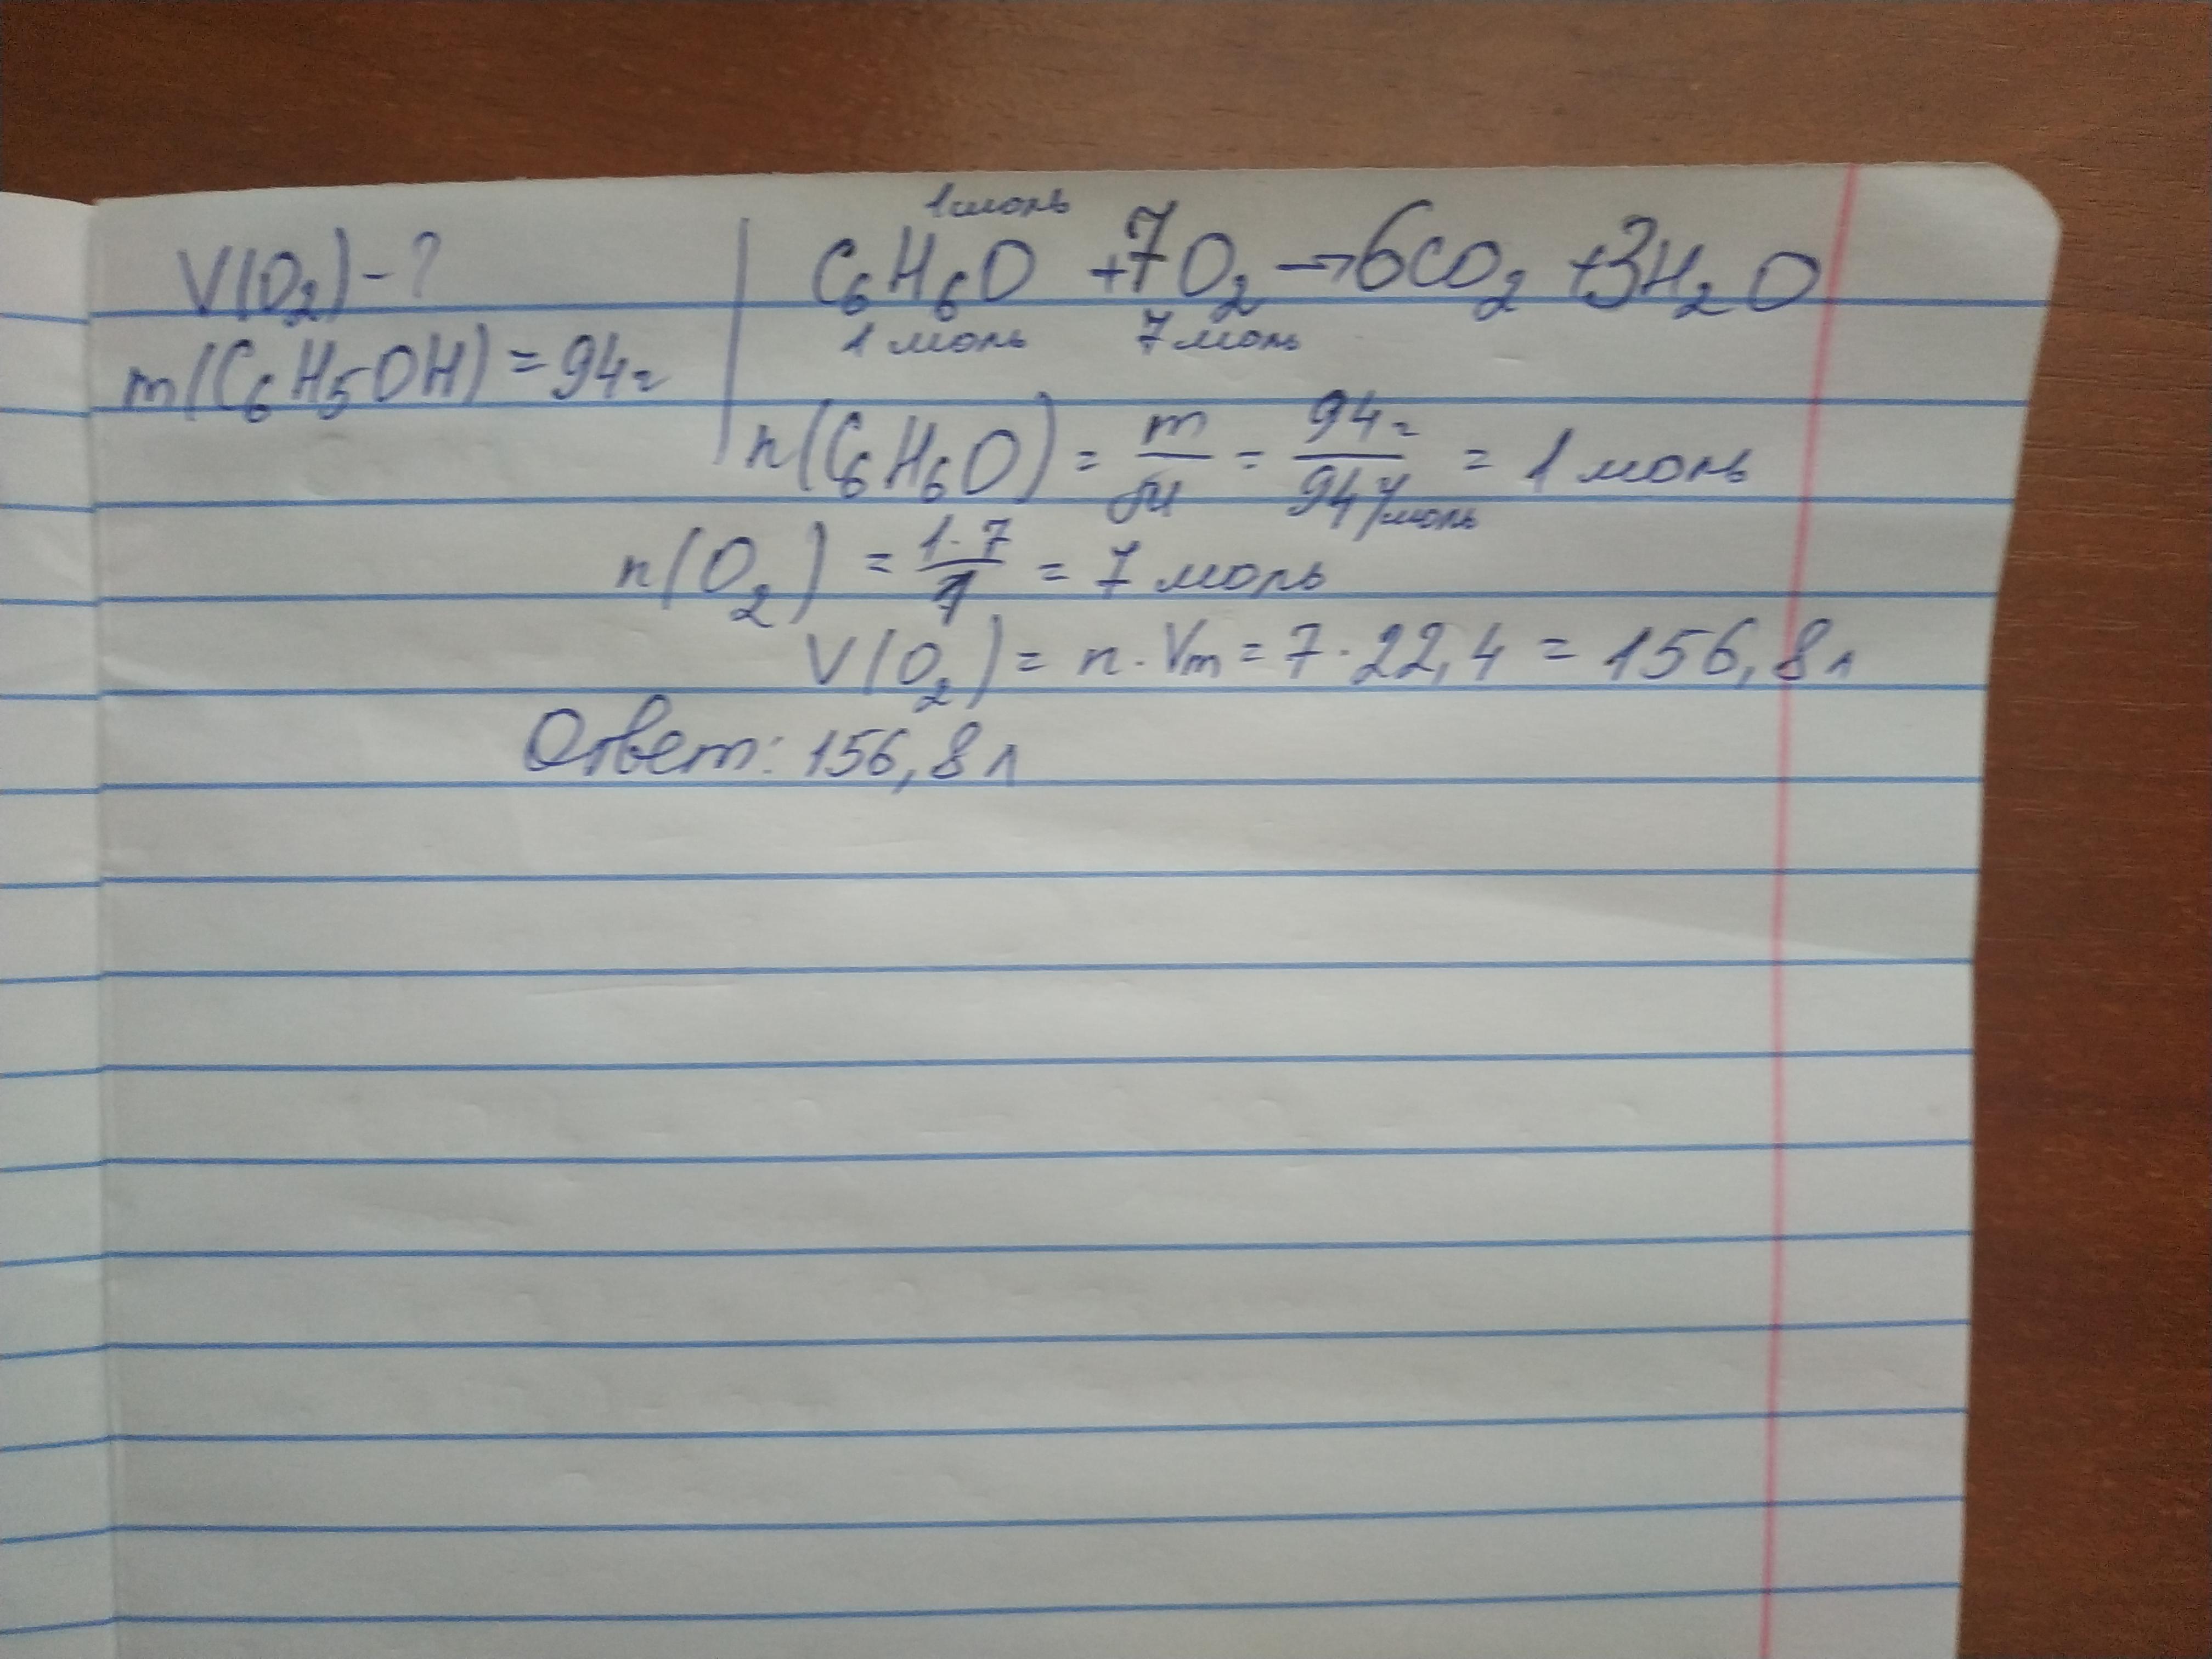 V(O₂) - ?
m(C₆H₅OH) = 94г
1 моль
C₆H₆O + 7O₂ → 6CO₂ + 3H₂O
1 моль 7 моль
n(C₆H₆O) = m/M = 94г/94г/моль = 1 моль
n(O₂) = 1·7/1 = 7 моль
V(O₂) = n · Vm = 7 · 22,4 = 156,8л
Ответ: 156,8 л